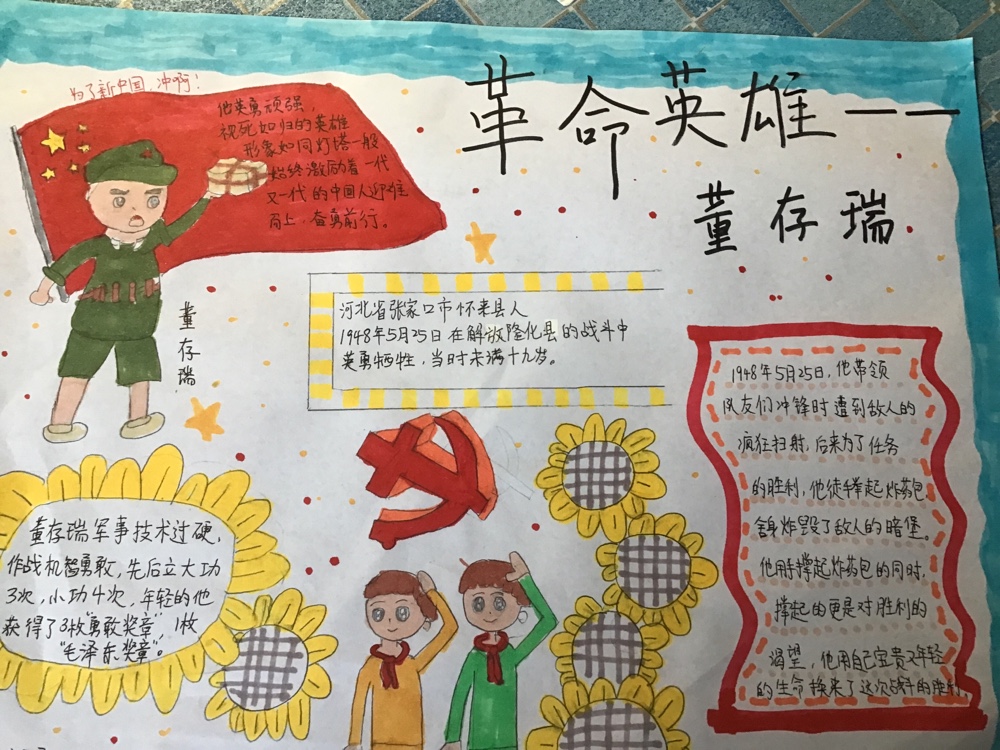 革命英雄——
董存瑞
为了新中国,冲啊!
他英勇顽强,
视死如归的英雄
形象如同灯塔一般
始终激励着一代
又一代的中国人迎难
而上,奋勇前行。
董存瑞
河北省张家口市怀来县人
1948年5月25日在解放隆化县的战斗中
英勇牺牲,当时未满十九岁。
1948年5月25日,他带领
队友们冲锋时遭到敌人的
疯狂扫射,后来为了任务
的胜利,他徒手撑起炸药包
舍身炸毁了敌人的暗堡。
他用手撑起炸药包的同时,
撑起的更是对胜利的
渴望,他用自己宝贵又年轻
的生命换来了这次战斗的胜利。
董存瑞军事技术过硬,
作战机智勇敢,先后立大功
3次,小功4次,年轻的他
获得了3枚“勇敢奖章”,1枚
“毛泽东奖章”。